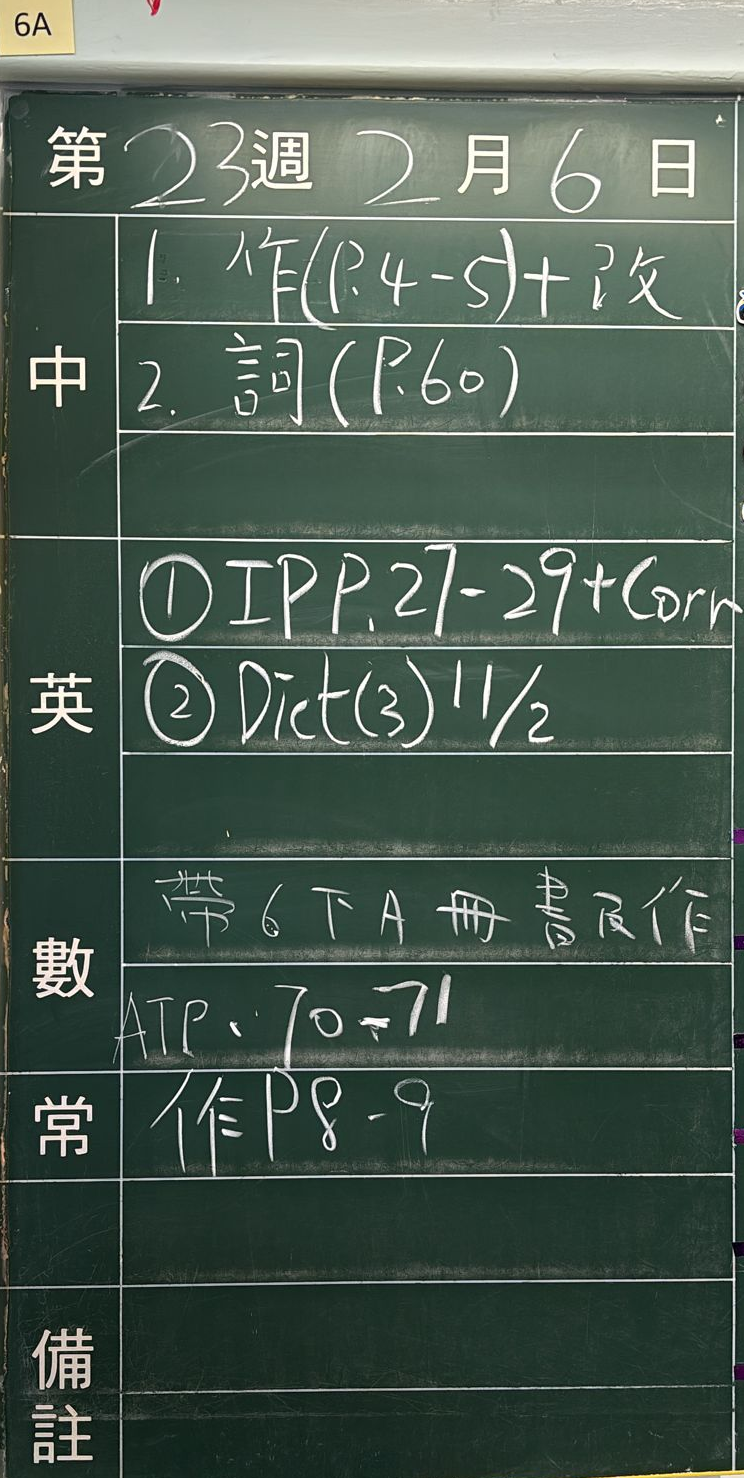 6A
第23週2月6日
中
1. 作(P.4-5)+改
2. 詞(P.60)
英
①IPP.27-29+Corr
②Dict(3)11/2
數
帶6下A冊書及作
ATP.70-71
常
作P8-9
備註